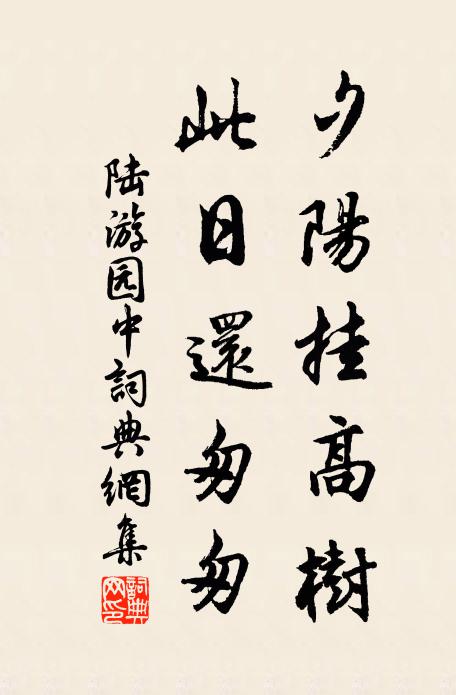 夕陽挂高樹
此日還匆匆
陆游园中詞典網集
詞典網印